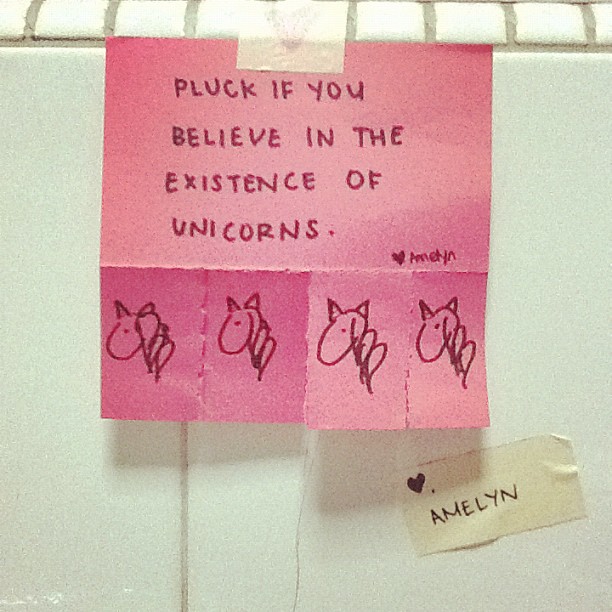 PLUCK IF YOU
BELIEVE IN THE
EXISTENCE OF
UNICORNS.
♥ Amelyn
♥.
AMELYN